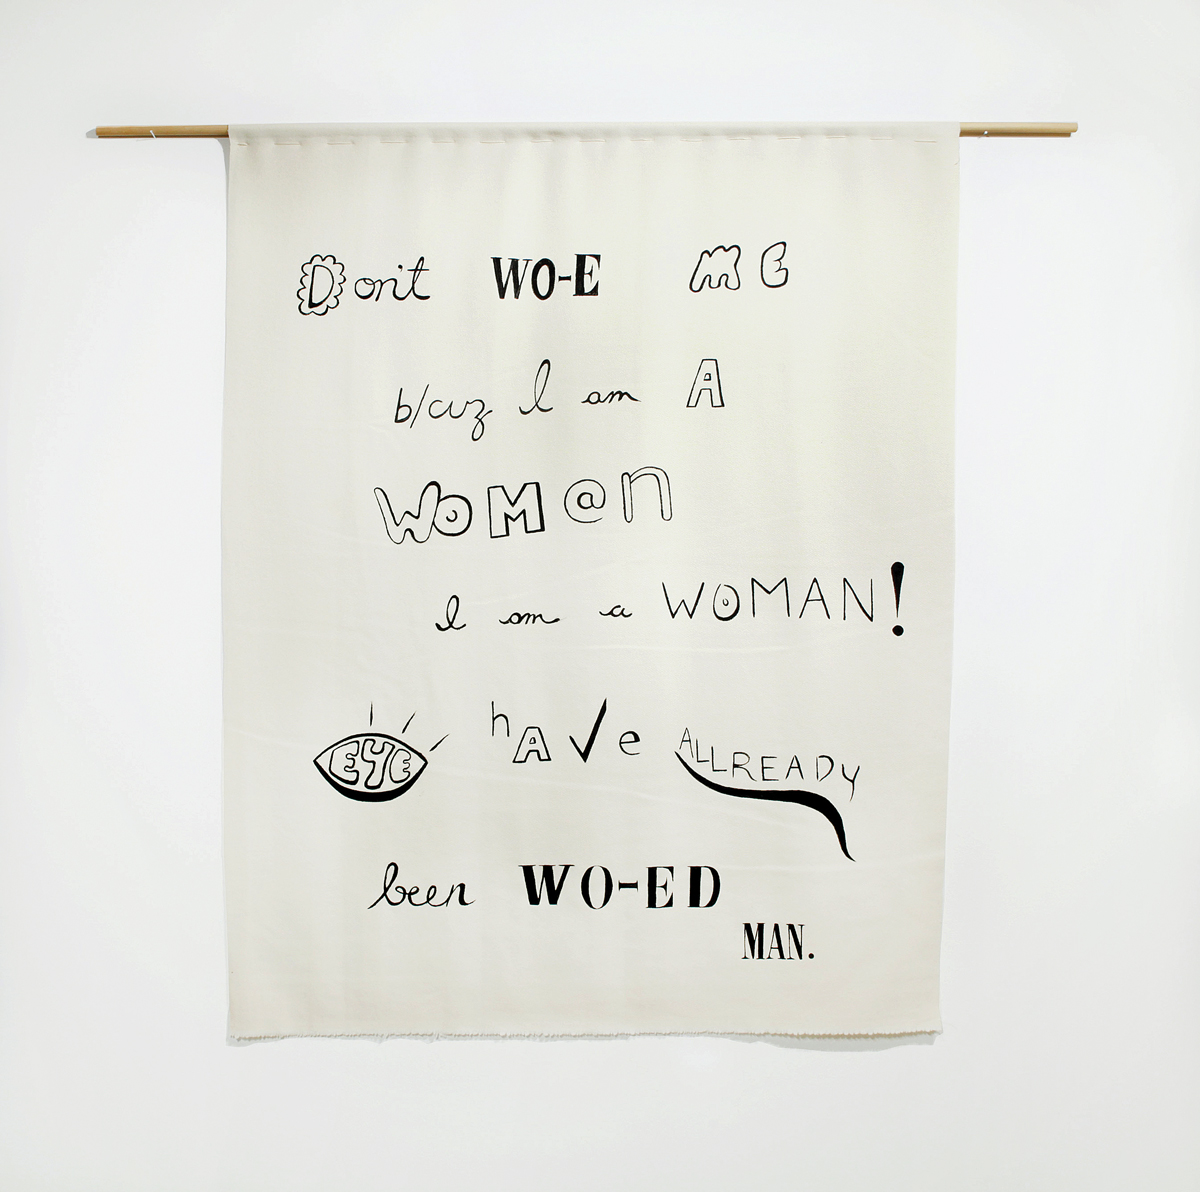 Don't WO-E ME
b/cuz I am A
WOM@n
I am a WOMAN!
EYE hAVe ALLREADY
been WO-ED
MAN.